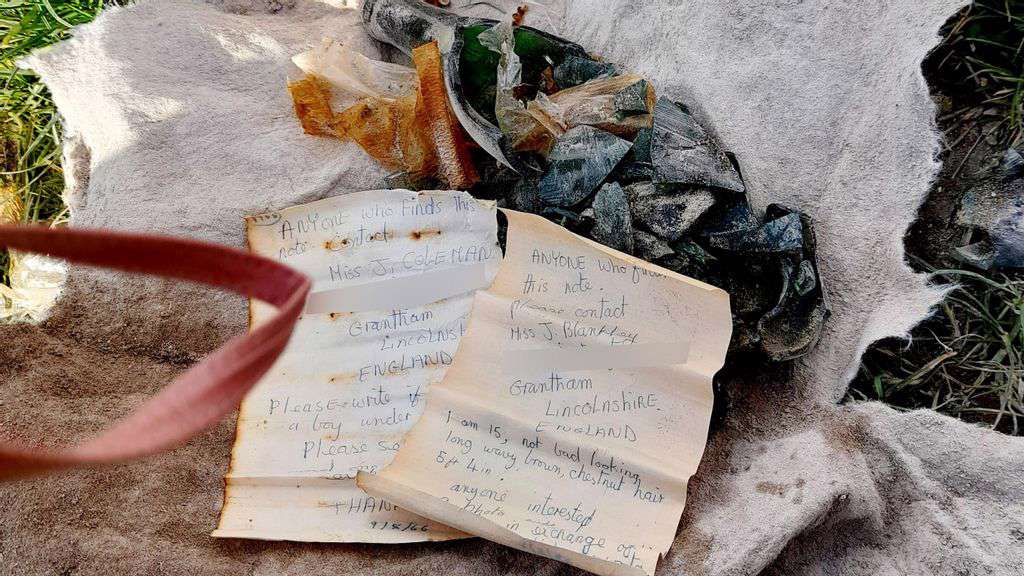 ANYONE who Finds this
note contact
Miss J. COLEMAN
Grantham
LINCOLNS
ENGLAND
Please write if
a boy under
Please se
THAN
ANYONE who
this note.
Please contact
Miss J. Blank
Grantham
LINCOLNSHIRE.
ENGLAND
I am 15, not bad looking,
long wavy brown, chestnut hair
5 ft 4 in.
anyone interested
photo in exchange of